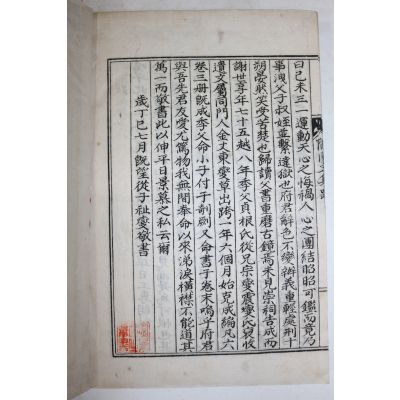 曰己未三一運動天心之悔禍人心之團結昭昭可鑑而竟乃
事洩父子叔姪並繫達獄也府君辭色不變辨義重輕處刑十
朔晏歎笑受苦楚也歸讀父書重磨古鏡焉未貝崇祠告成而
謝世享年七十五越八年季父貞根氏從兄宗燮震燮氏裒收
遺文屬同門人金丈東燮草出跨一年六個月始克成編凡六
卷三冊旣成季父命小子付于剞劂又命書于卷末嗚乎府君
與吾先君友愛尤篤物我無間奉命以來涕淚橫襟不能道其
萬一而敬書此以伸平日景慕之私云爾
歲丁巳七月旣望從子祉燮敬書